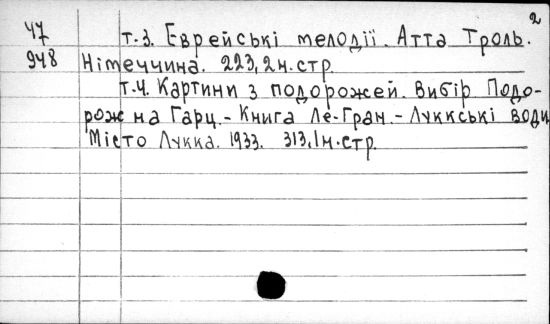 2
47 т.3. Еврейські мелодії. Атта Троль.
948 Німеччина. 223,2н.стр.
т.4. Картини з подорожей. Вибір Подо-
рож на Гарц.- Книга Ле-Гран.- Луккські води
Місто Лукка. 1933. 313,1н.стр.